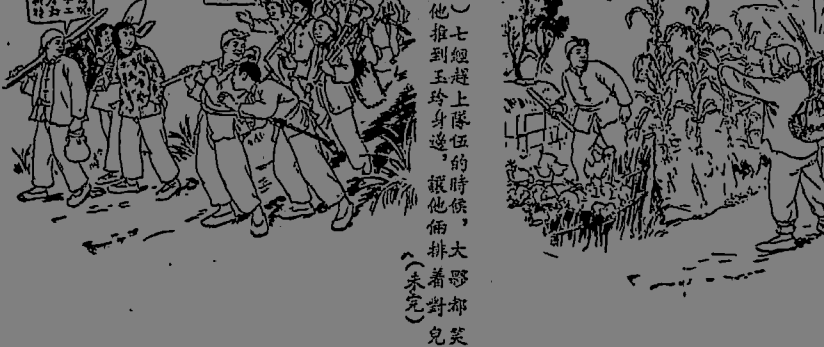 ）七組趕上隊伍的時候，大夥都笑
他推到玉玲身邊，讓他倆排着對兒
（未完）